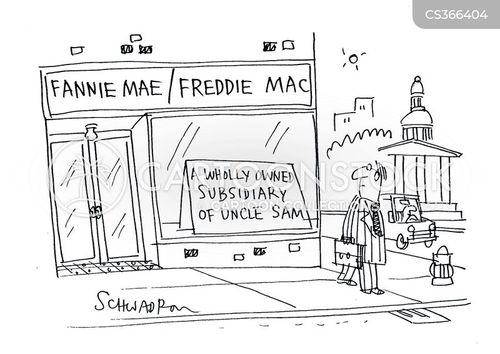 CS366404
FANNIE MAE/FREDDIE MAC
A WHOLLY OWNED
SUBSIDIARY
OF UNCLE SAM
SCHWADRON